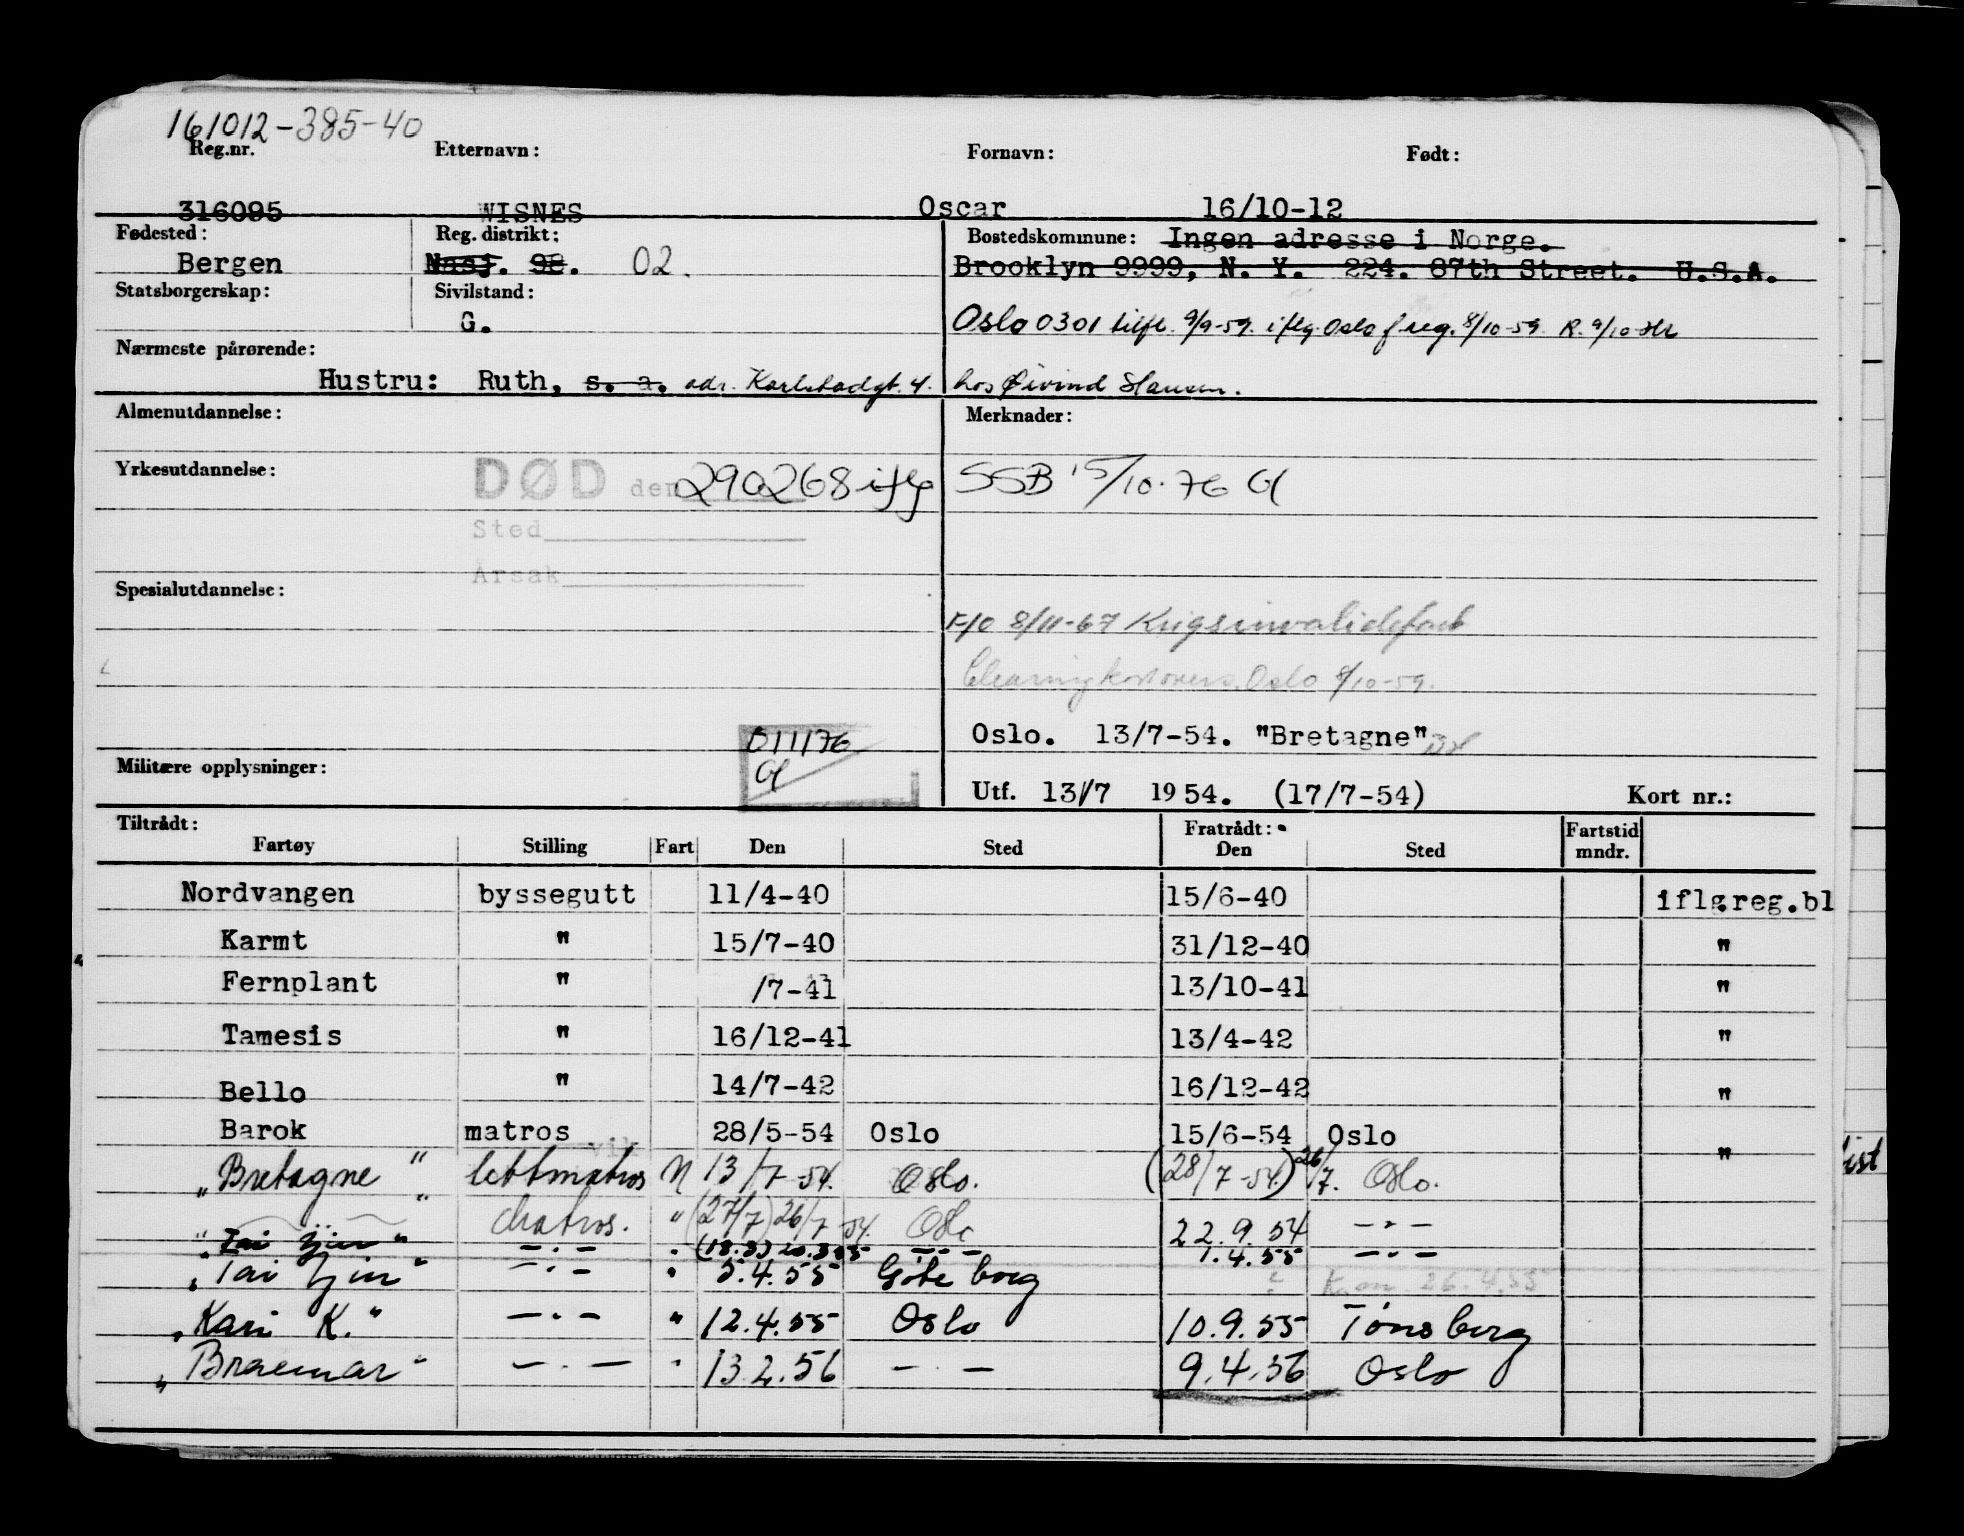 161012-385-40
Reg.nr. Etternavn: Fornavn: Født:
316095 WISNES Oscar 16/10-12
Fødested: Reg. distrikt: Bostedskommune: Ingen adresse i Norge.
Bergen Nasj. 98. 02. Brooklyn 9999, N. Y. 224. 87th Street. U.S.A.
Statsborgerskap: Sivilstand:
G. Oslo 0301 tilfl. 9/9-59. iflg. Oslo f reg. 8/10-59. R. 9/10
Nærmeste pårørende:
Hustru: Ruth, s. a. adr. Karlstadgt. 4. hos Øivind Hansen.
Almenutdannelse: Merknader:
Yrkesutdannelse: DØD den 290268 iflg SSB 15/10.76
Sted
Årsak
Spesialutdannelse:
F/O 8/11-67 Krigsinvalidefork
Oslo 8/10-59.
011176 Oslo. 13/7-54. "Bretagne"
Militære opplysninger:
Utf. 13/7 1954. (17/7-54) Kort nr.:
Tiltrådt: Fratrådt: Fartstid
Fartøy Stilling Fart Den Sted Den Sted mndr.
Nordvangen byssegutt 11/4-40 15/6-40 iflg.reg.bl
Karmt " 15/7-40 31/12-40 "
Fernplant " /7-41 13/10-41 "
Tamesis " 16/12-41 13/4-42 "
Bello " 14/7-42 16/12-42 "
Barok matros 28/5-54 Oslo 15/6-54 Oslo
"Bretagne" lettmatros N 13/7-54. Oslo. (28/7-54.) 26/7. Oslo. "
" " matros. " (27/7) 26/7-54. Oslo 22.9.54 -"-
"Tai Yin" -"- " (18.3) 20.3.55 -"- 1.4.55 -"-
"Tai Yin" -"- " 5.4.55 Göteborg 26.4.55
"Kari K." -"- " 12.4.55 Oslo 10.9.55 Tönsberg
"Braemar" -"- " 13.2.56 -"- 9.4.56 Oslo